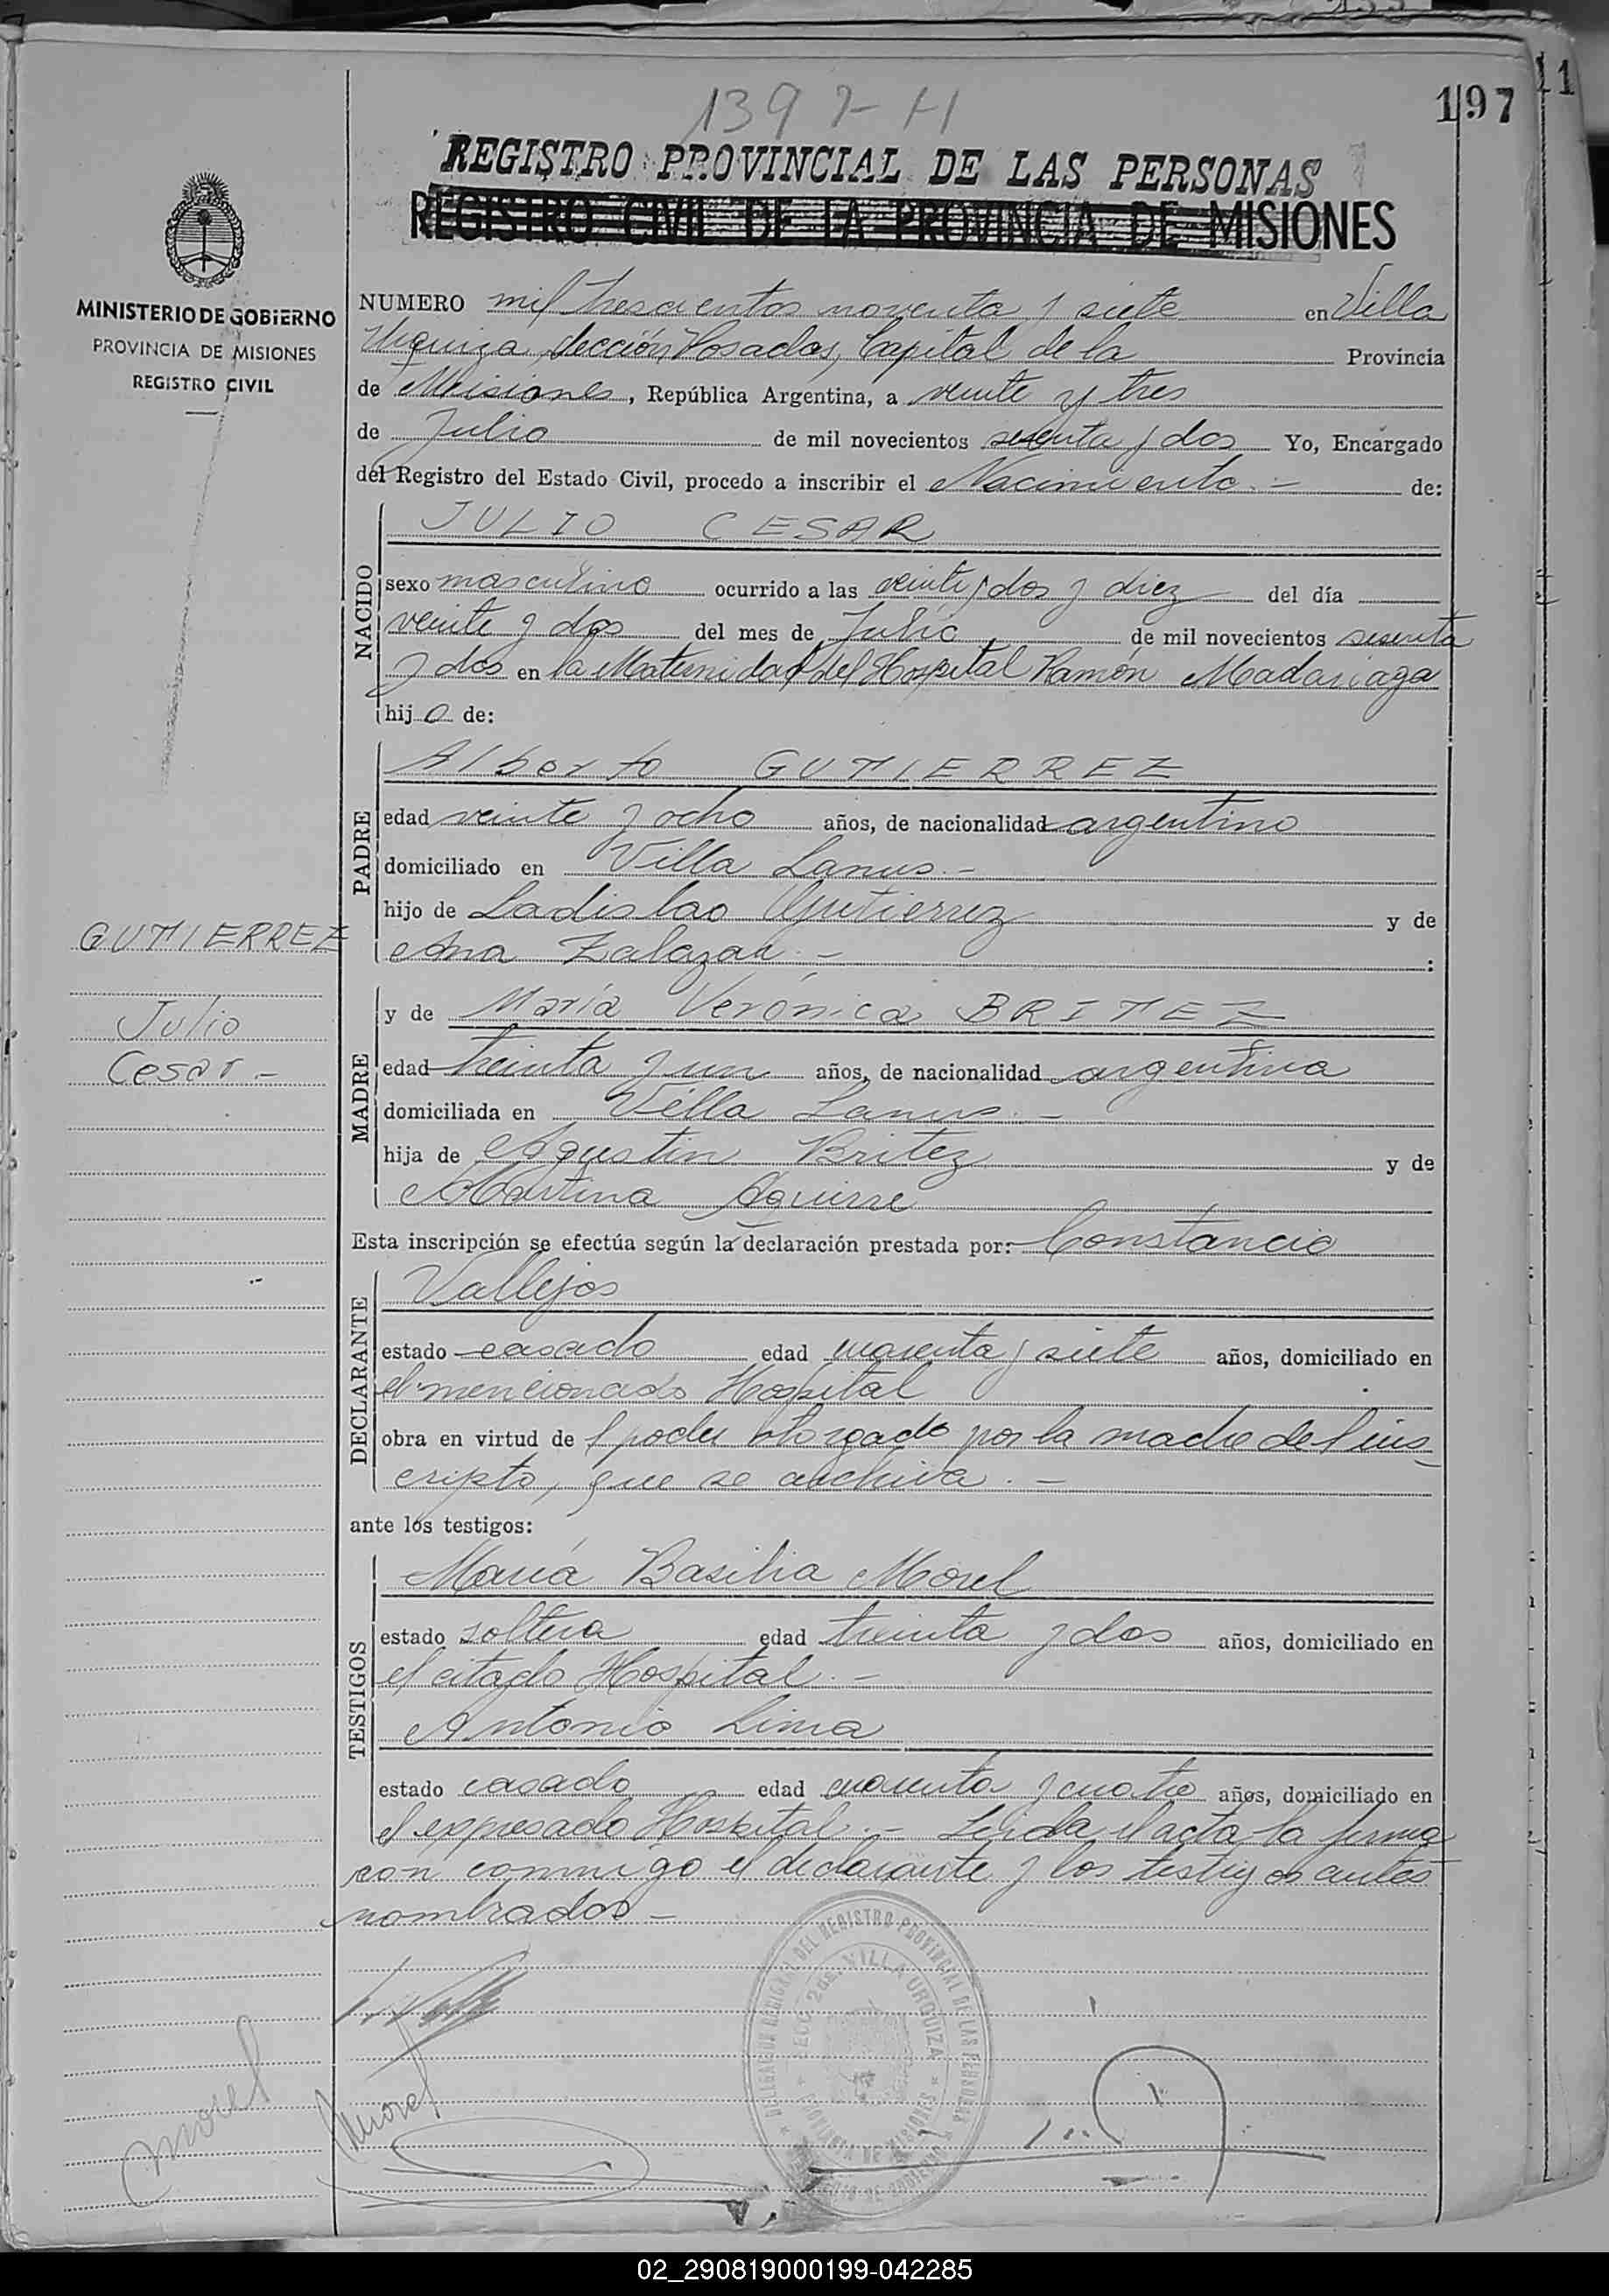 197
1397-H
REGISTRO PROVINCIAL DE LAS PERSONAS
REGISTRO CIVIL DE LA PROVINCIA DE MISIONES
MINISTERIO DE GOBIERNO
PROVINCIA DE MISIONES
REGISTRO CIVIL
NUMERO mil trescientos noventa y siete en Villa
Urquiza, Sección Posadas, Capital de la Provincia
de Misiones, República Argentina, a veinte y tres
de Julio de mil novecientos sesenta y dos Yo, Encargado
del Registro del Estado Civil, procedo a inscribir el Nacimiento.- de:
NACIDO
JULIO CESAR
sexo masculino ocurrido a las veinte y dos y diez del día
veinte y dos del mes de Julio, de mil novecientos sesenta
y dos en la Maternidad del Hospital Ramón Madariaga
hij o de:
PADRE
Alberto GUTIERREZ
edad veinte y ocho años, de nacionalidad argentino
domiciliado en Villa Lanus.-
hijo de Ladislao Gutierrez y de
Ana Zalazar.- :
GUTIERREZ
Julio
Cesar-
MADRE
y de María Verónica BRITEZ
edad treinta y un años, de nacionalidad argentina
domiciliada en Villa Lanus.-
hija de Agustin Britez y de
Martina Aguirre
Esta inscripción se efectúa según la declaración prestada por: Constancio
DECLARANTE
Vallejos
estado casado edad cuarenta y siete años, domiciliado en
el mencionado Hospital
obra en virtud de l poder otorgado por la madre del ins-
cripto, que se archiva.-
ante los testigos:
TESTIGOS
María Basilia Morel
estado soltera edad treinta y dos años, domiciliado en
el citado Hospital.-
Antonio Lima
estado casado edad cuarenta y cuatro años, domiciliado en
el expresado Hospital.- Leída el acta, la firma
con conmigo el declarante y los testigos antes
nombrados-
DELEGACION DEL REGISTRO PROVINCIAL DE LAS PERSONAS
SECC. 2da. VILLA URQUIZA
PROVINCIA DE MISIONES
Morel
Morel
02_290819000199-042285